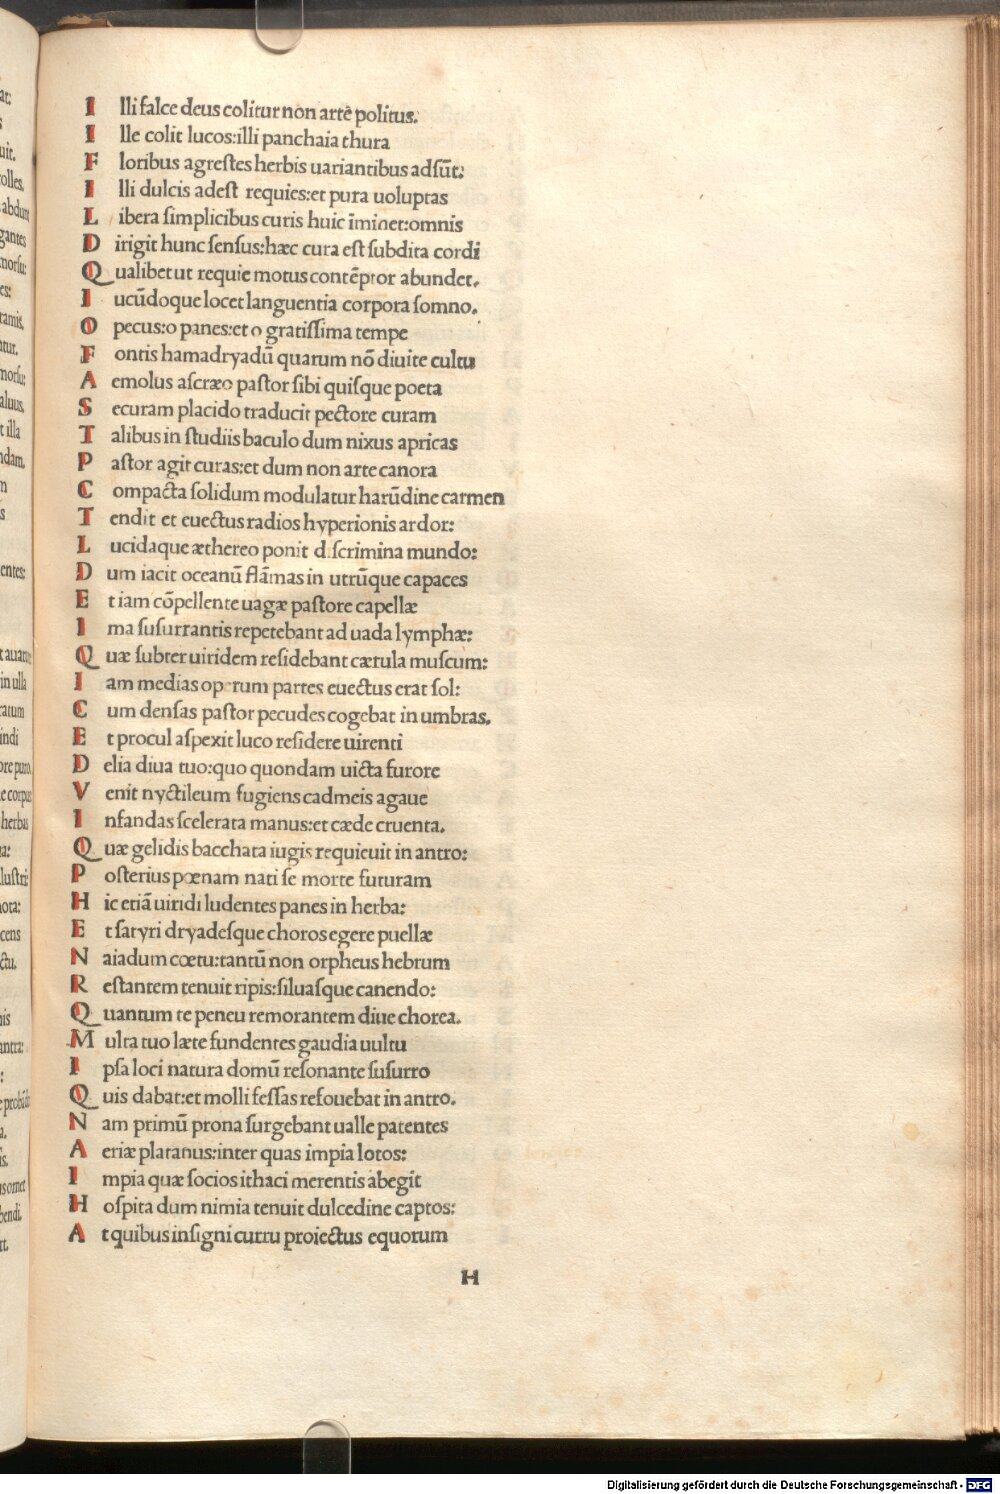 Illi falce deus colitur non arte politus.
Ille colit lucos:illi panchaia thura
Floribus agrestes herbis uariantibus adsūt:
Illi dulcis adest requies:et pura uoluptas
Libera simplicibus curis huic īminet:omnis
Dirigit hunc sensus:hæc cura est subdita cordi
Qualibet ut requie motus contēptor abundet.
Iucūdoque locet languentia corpora somno.
O pecus:o panes:et o gratissima tempe
Fontis hamadryadū quarum nō diuite cultu
Aemolus ascræo pastor sibi quisque poeta
Securam placido traducit pectore curam
Talibus in studiis baculo dum nixus apricas
Pastor agit curas:et dum non arte canora
Compacta solidum modulatur harūdine carmen
Tendit et euectus radios hyperionis ardor:
Lucidaque æthereo ponit discrimina mundo:
Dum iacit oceanū flāmas in utrūque capaces
Et iam cōpellente uagæ pastore capellæ
Ima susurrantis repetebant ad uada lymphæ:
Quæ subter uiridem residebant cærula muscum:
Iam medias operum partes euectus erat sol:
Cum densas pastor pecudes cogebat in umbras.
Et procul aspexit luco residere uirenti
Delia diua tuo:quo quondam uicta furore
Venit nyctileum fugiens cadmeis agaue
Infandas scelerata manus:et cæde cruenta.
Quæ gelidis bacchata iugis requieuit in antro:
Posterius pœnam nati se morte futuram
Hic etiā uiridi ludentes panes in herba:
Et satyri dryadesque choros egere puellæ
Naiadum cœtu:tantū non orpheus hebrum
Restantem tenuit ripis:siluasque canendo:
Quantum te peneu remorantem diue chorea.
Multa tuo læte fundentes gaudia uultu
Ipsa loci natura domū resonante susurro
Quis dabat:et molli fessas refouebat in antro.
Nam primū prona surgebant ualle patentes
Aeriæ platanus:inter quas impia lotos:
Impia quæ socios ithaci merentis abegit
Hospita dum nimia tenuit dulcedine captos:
At quibus insigni curru proiectus equorum
H
Digitalisierung gefördert durch die Deutsche Forschungsgemeinschaft - DFG